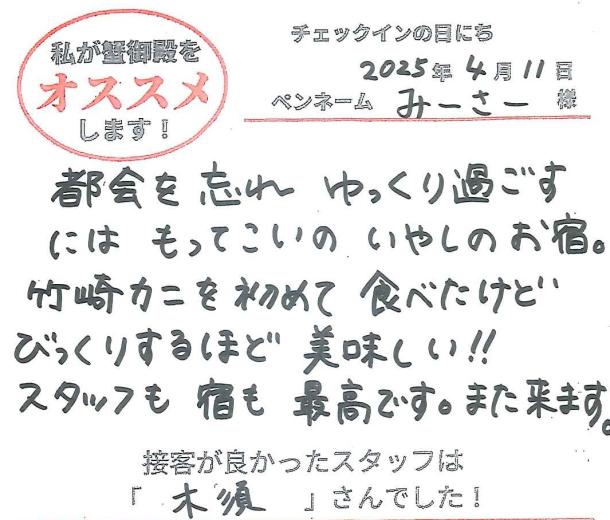 私が蟹御殿を
オススメ
します！
チェックインの日にち
2025年 4月 11日
ペンネーム みーさー 様
都会を忘れ ゆっくり過ごす
には もってこいの いやしのお宿。
竹崎カニを初めて 食べたけど
びっくりするほど 美味しい!!
スタッフも 宿も 最高です。また来ます。
接客が良かったスタッフは
「 木須 」さんでした！